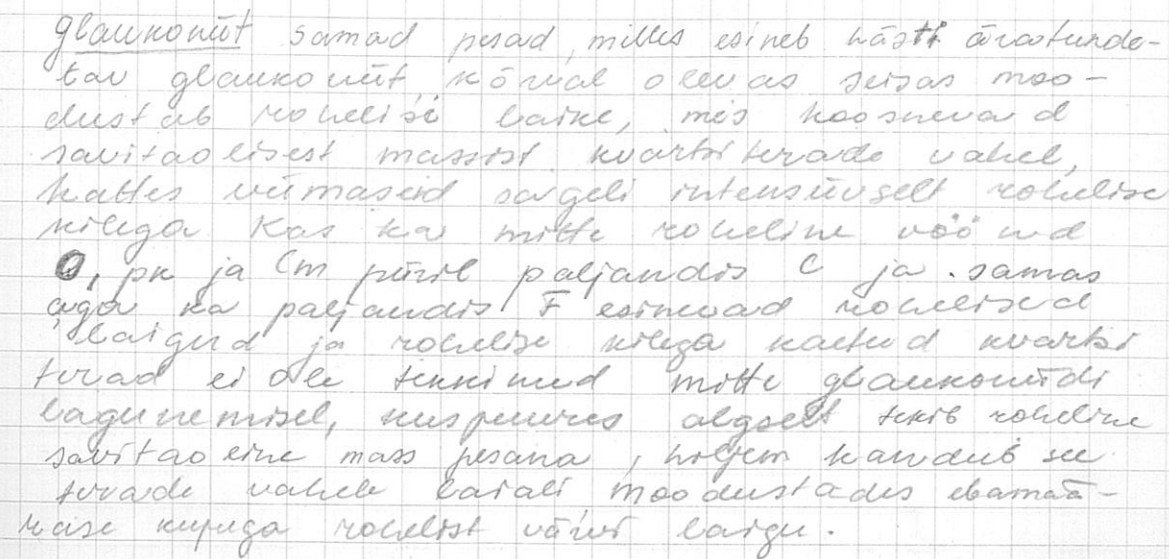 glaukoniit samad pesad, milles esineb hästi äratunde-
tav glaukoniit, kõrval olevas seisas moo-
dustab rohelisi laike, mis koosnevad
savitaolisest massist kvartsi terade vahel,
kattes viimaseid sageli intensiivselt rohelise
kilega. Kas ka mitte roheline vöönd
O, pk ja Cm piiril paljandis C ja samas
aga ka paljandis F esinevad rohelised
laigud ja rohelise kilega kaetud kvartsi
terad ei ole tekkinud mitte glaukoniidi
lagunemisel, kusjuures algselt tekib roheline
savitaoline mass pesana, hiljem kandub see
terade vahele laiali moodustades ebamää-
rase kujuga rohelist värvi laigu.